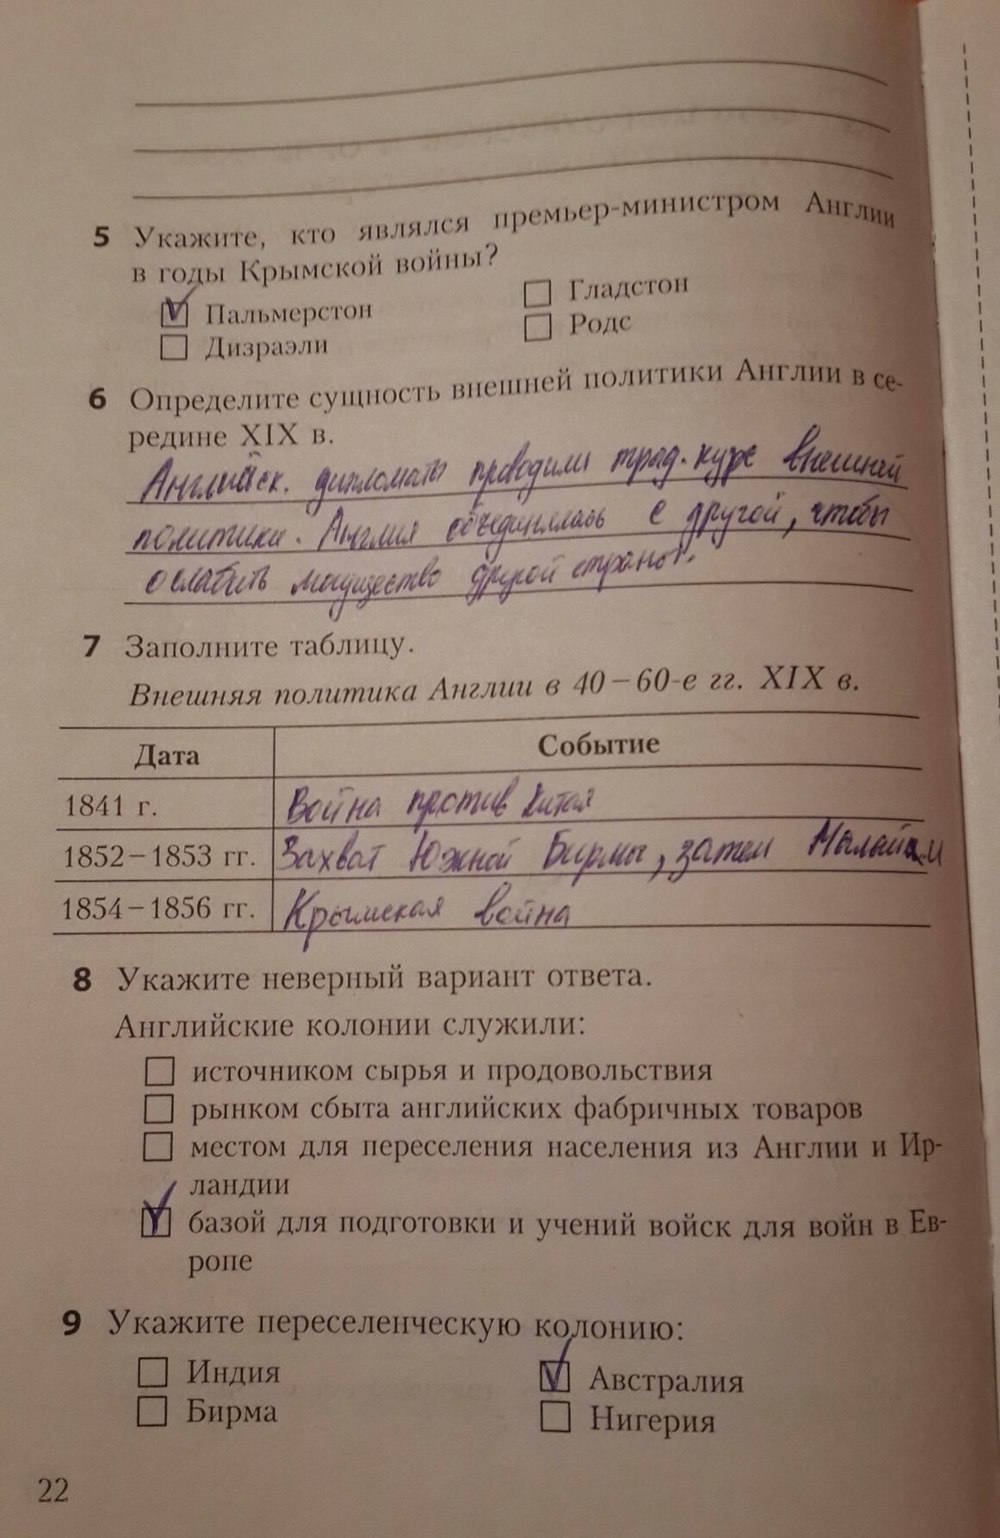 5 Укажите, кто являлся премьер-министром Англии
в годы Крымской войны?
Пальмерстон Гладстон
Дизраэли Родс
6 Определите сущность внешней политики Англии в се-
редине XIX в.
Английск. дипломаты проводили трад. курс внешней
политики. Англия объединялась с другой, чтобы
ослабить могущество другой страны.
7 Заполните таблицу.
Внешняя политика Англии в 40–60-е гг. XIX в.
Дата Событие
1841 г. Война против Китая
1852–1853 гг. Захват Южной Бирмы, затем
1854–1856 гг. Крымская война
8 Укажите неверный вариант ответа.
Английские колонии служили:
источником сырья и продовольствия
рынком сбыта английских фабричных товаров
местом для переселения населения из Англии и Ир-
ландии
базой для подготовки и учений войск для войн в Ев-
ропе
9 Укажите переселенческую колонию:
Индия Австралия
Бирма Нигерия
22